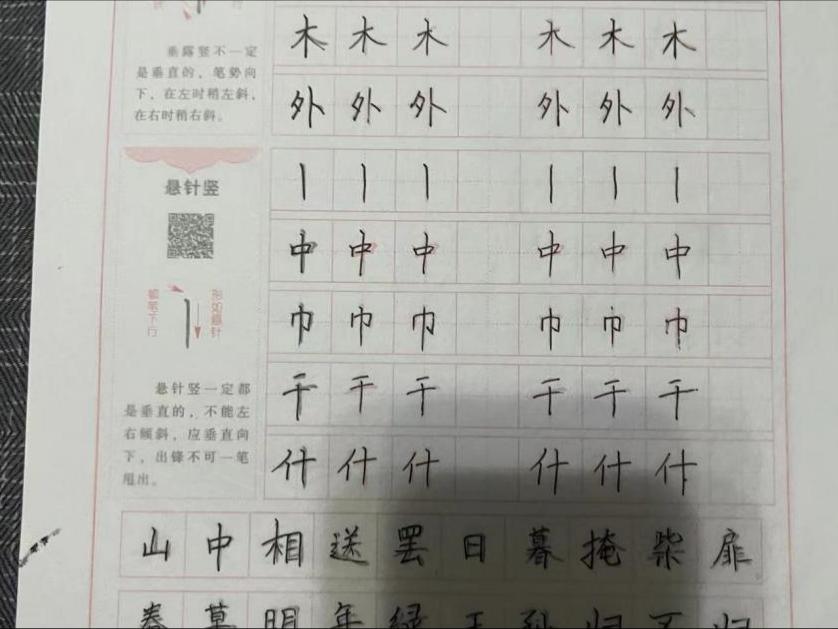 垂露竖不一定
是垂直的，笔势向
下，在左时稍左斜，
在右时稍右斜。
木 木 木 木 木 木
外 外 外 外 外 外
悬针竖
顿笔下行
形如悬针
悬针竖一定都
是垂直的，不能左
右倾斜，应垂直向
下，出锋不可一笔
甩出。
丨 丨 丨 丨 丨 丨
中 中 中 中 中 中
巾 巾 巾 巾 巾 巾
干 干 干 干 干 干
什 什 什 什 什 什
山 中 相 送 罢 日 暮 掩 柴 扉
春 草 明 年 绿 王 孙 归 不 归